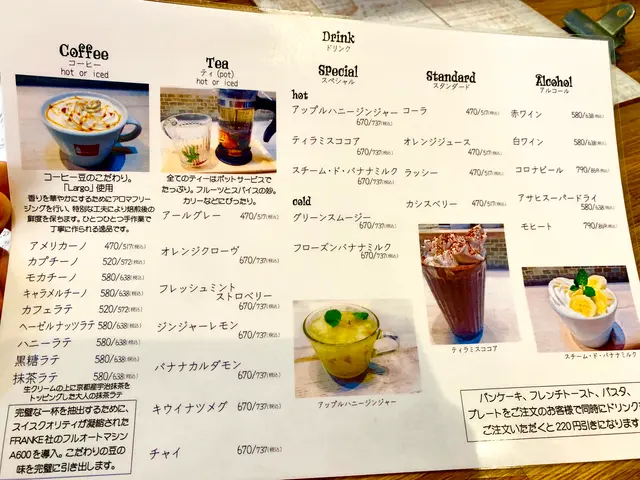 Drink
ドリンク
Coffee
コーヒー
hot or iced
コーヒー豆のこだわり。
「Largo」使用
香りを華やかにするためにアロマフリー
ジングを行い、特別な工夫により焙煎後の
鮮度を保ちます。ひとつひとつ手作業で
丁寧に作られる逸品です。
アメリカーノ 470/517(税込)
カプチーノ 520/572(税込)
モカチーノ 580/638(税込)
キャラメルチーノ 580/638(税込)
カフェラテ 520/572(税込)
ヘーゼルナッツラテ 580/638(税込)
ハニーラテ 580/638(税込)
黒糖ラテ 580/638(税込)
抹茶ラテ 580/638(税込)
生クリームの上に京都産宇治抹茶を
トッピングした大人の抹茶ラテ
完璧な一杯を抽出するために、
スイスクオリティが凝縮された
FRANKE社のフルオートマシン
A600を導入。こだわりの豆の
味を完璧に引き出します。
Tea
ティ(pot)
hot or iced
全てのティーはポットサービスで
たっぷり。フルーツとスパイスの妙。
カリーなどにぴったり。
アールグレー 470/517(税込)
オレンジクローヴ
670/737(税込)
フレッシュミント
ストロベリー
670/737(税込)
ジンジャーレモン
670/737(税込)
バナナカルダモン
670/737(税込)
キウイナツメグ 670/737(税込)
チャイ 670/737(税込)
Special
スペシャル
hot
アップルハニージンジャー
670/737(税込)
ティラミスココア
670/737(税込)
スチーム・ド・バナナミルク
670/737(税込)
cold
グリーンスムージー
670/737(税込)
フローズンバナナミルク
670/737(税込)
アップルハニージンジャー
Standard
スタンダード
コーラ 470/517(税込)
オレンジジュース
470/517(税込)
ラッシー 470/517(税込)
カシスベリー 470/517(税込)
ティラミスココア
Alcohol
アルコール
赤ワイン 580/638(税込)
白ワイン 580/638(税込)
コロナビール 790/869(税込)
アサヒスーパードライ
580/638(税込)
モヒート 790/869(税込)
スチーム・ド・バナナミルク
パンケーキ、フレンチトースト、パスタ、
プレートをご注文のお客様で同時にドリンクを
ご注文いただくと220円引きになります